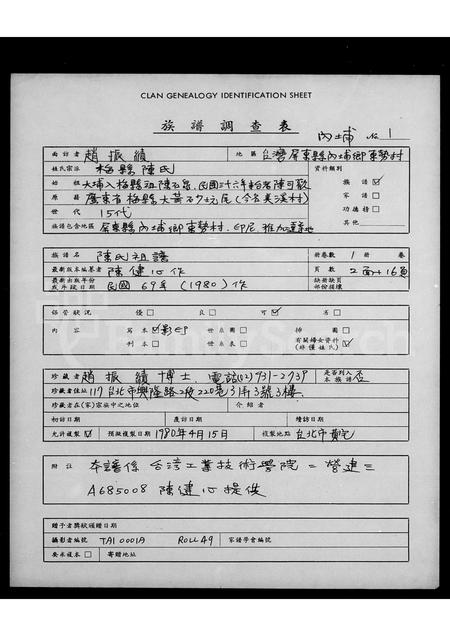 CLAN GENEALOGY IDENTIFICATION SHEET
族譜調查表 內埔 No. 1
面訪者 趙振績 地區 台灣屏東縣內埔鄉東勢村
姓氏宗派 梅縣陳氏 資料類別
始祖 大埔入梅縣祖陳 民國三十六年 族譜 ☑
原籍 廣東省梅縣大黃 家譜 □
世代 15代 功德榜 □
族譜包含地區 屏東縣內埔鄉東勢村、印尼、雅加達等地 其他
族譜名 陳氏祖譜 冊卷數 1 冊 卷
最新版本編纂者 陳健心作 頁數 2面+16頁
最新出版年份或手段日期 民國69年(1980)作 缺冊缺頁部份損壞
保管狀況 優 □ 良 □ 可 ☑ 劣 □
內容 寫本 ☑ 影印 世系圖 □ 排圖 □
刊本 □ 世系表 □ 有關婦女資料(非僅姓氏) □
珍藏者 趙振績博士 電話(02)931-2939 是否列入本族譜 否
珍藏者住址 117台北市興隆路2段220巷3弄3號3樓
珍藏者在(家)宗族中之地位 介紹者
初訪日期 度訪日期 續訪日期
允許複製 ☑ 預擬複製日期 1980年4月15日 複製地點 台北市
附註 本譜係台灣工業技術學院二營建三
A685008 陳健心提供
贈予者獎狀頒贈日期
攝影者編號 TAI 0001A ROLL 49 家譜學會編號
要求複本 □ 寄贈地址